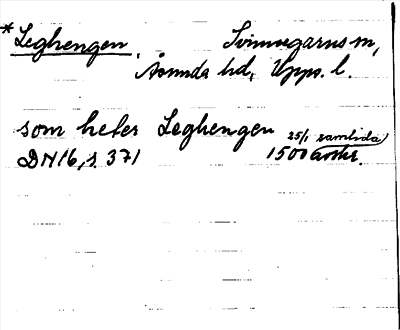 *Leghengen, Svinnegarns sn,
Åsunda hd, Upps. l.
som heter Leghengen 25/1 samtida
DN 16, s. 371 1500 avskr.